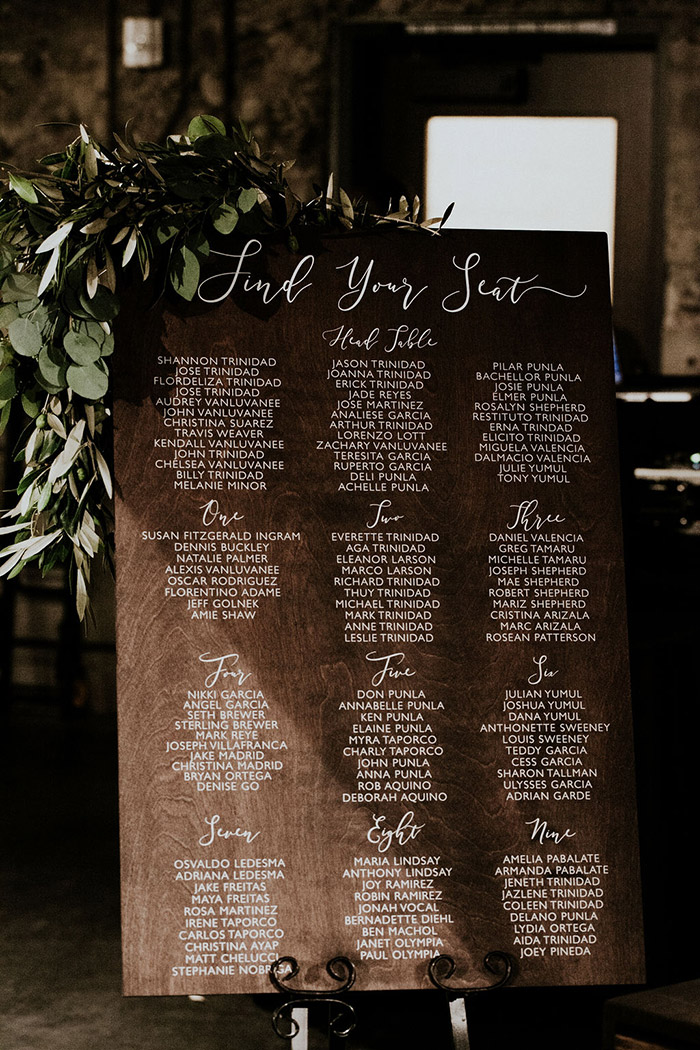 Find Your Seat
Head Table
SHANNON TRINIDAD
JOSE TRINIDAD
FLORDELIZA TRINIDAD
JOSE TRINIDAD
AUDREY VANLUVANEE
JOHN VANLUVANEE
CHRISTINA SUAREZ
TRAVIS WEAVER
KENDALL VANLUVANEE
JOHN TRINIDAD
CHELSEA VANLUVANEE
BILLY TRINIDAD
MELANIE MINOR
JASON TRINIDAD
JOANNA TRINIDAD
ERICK TRINIDAD
JADE REYES
JOSE MARTINEZ
ANALIESE GARCIA
ARTHUR TRINIDAD
LORENZO LOTT
ZACHARY VANLUVANEE
TERESITA GARCIA
RUPERTO GARCIA
DELI PUNLA
ACHELLE PUNLA
PILAR PUNLA
BACHELLOR PUNLA
JOSIE PUNLA
ELMER PUNLA
ROSALYN SHEPHERD
RESTITUTO TRINIDAD
ERNA TRINIDAD
ELICITO TRINIDAD
MIGUELA VALENCIA
DALMACIO VALENCIA
JULIE YUMUL
TONY YUMUL
One
SUSAN FITZGERALD INGRAM
DENNIS BUCKLEY
NATALIE PALMER
ALEXIS VANLUVANEE
OSCAR RODRIGUEZ
FLORENTINO ADAME
JEFF GOLNEK
AMIE SHAW
Two
EVERETTE TRINIDAD
AGA TRINIDAD
ELEANOR LARSON
MARCO LARSON
RICHARD TRINIDAD
THUY TRINIDAD
MICHAEL TRINIDAD
MARK TRINIDAD
ANNE TRINIDAD
LESLIE TRINIDAD
Three
DANIEL VALENCIA
GREG TAMARU
MICHELLE TAMARU
JOSEPH SHEPHERD
MAE SHEPHERD
ROBERT SHEPHERD
MARIZ SHEPHERD
CRISTINA ARIZALA
MARC ARIZALA
ROSEAN PATTERSON
Four
NIKKI GARCIA
ANGEL GARCIA
SETH BREWER
STERLING BREWER
MARK REYE
JOSEPH VILLAFRANCA
JAKE MADRID
CHRISTINA MADRID
BRYAN ORTEGA
DENISE GO
Five
DON PUNLA
ANNABELLE PUNLA
KEN PUNLA
ELAINE PUNLA
MYRA TAPORCO
CHARLY TAPORCO
JOHN PUNLA
ANNA PUNLA
ROB AQUINO
DEBORAH AQUINO
Six
JULIAN YUMUL
JOSHUA YUMUL
DANA YUMUL
ANTHONETTE SWEENEY
LOUIS SWEENEY
TEDDY GARCIA
CESS GARCIA
SHARON TALLMAN
ULYSSES GARCIA
ADRIAN GARDE
Seven
OSVALDO LEDESMA
ADRIANA LEDESMA
JAKE FREITAS
MAYA FREITAS
ROSA MARTINEZ
IRENE TAPORCO
CARLOS TAPORCO
CHRISTINA AYAP
MATT CHELUCCI
STEPHANIE NOBRIGA
Eight
MARIA LINDSAY
ANTHONY LINDSAY
JOY RAMIREZ
ROBIN RAMIREZ
JONAH VOCAL
BERNADETTE DIEHL
BEN MACHOL
JANET OLYMPIA
PAUL OLYMPIA
Nine
AMELIA PABALATE
ARMANDA PABALATE
JENETH TRINIDAD
JAZLENE TRINIDAD
COLEEN TRINIDAD
DELANO PUNLA
LYDIA ORTEGA
AIDA TRINIDAD
JOEY PINEDA